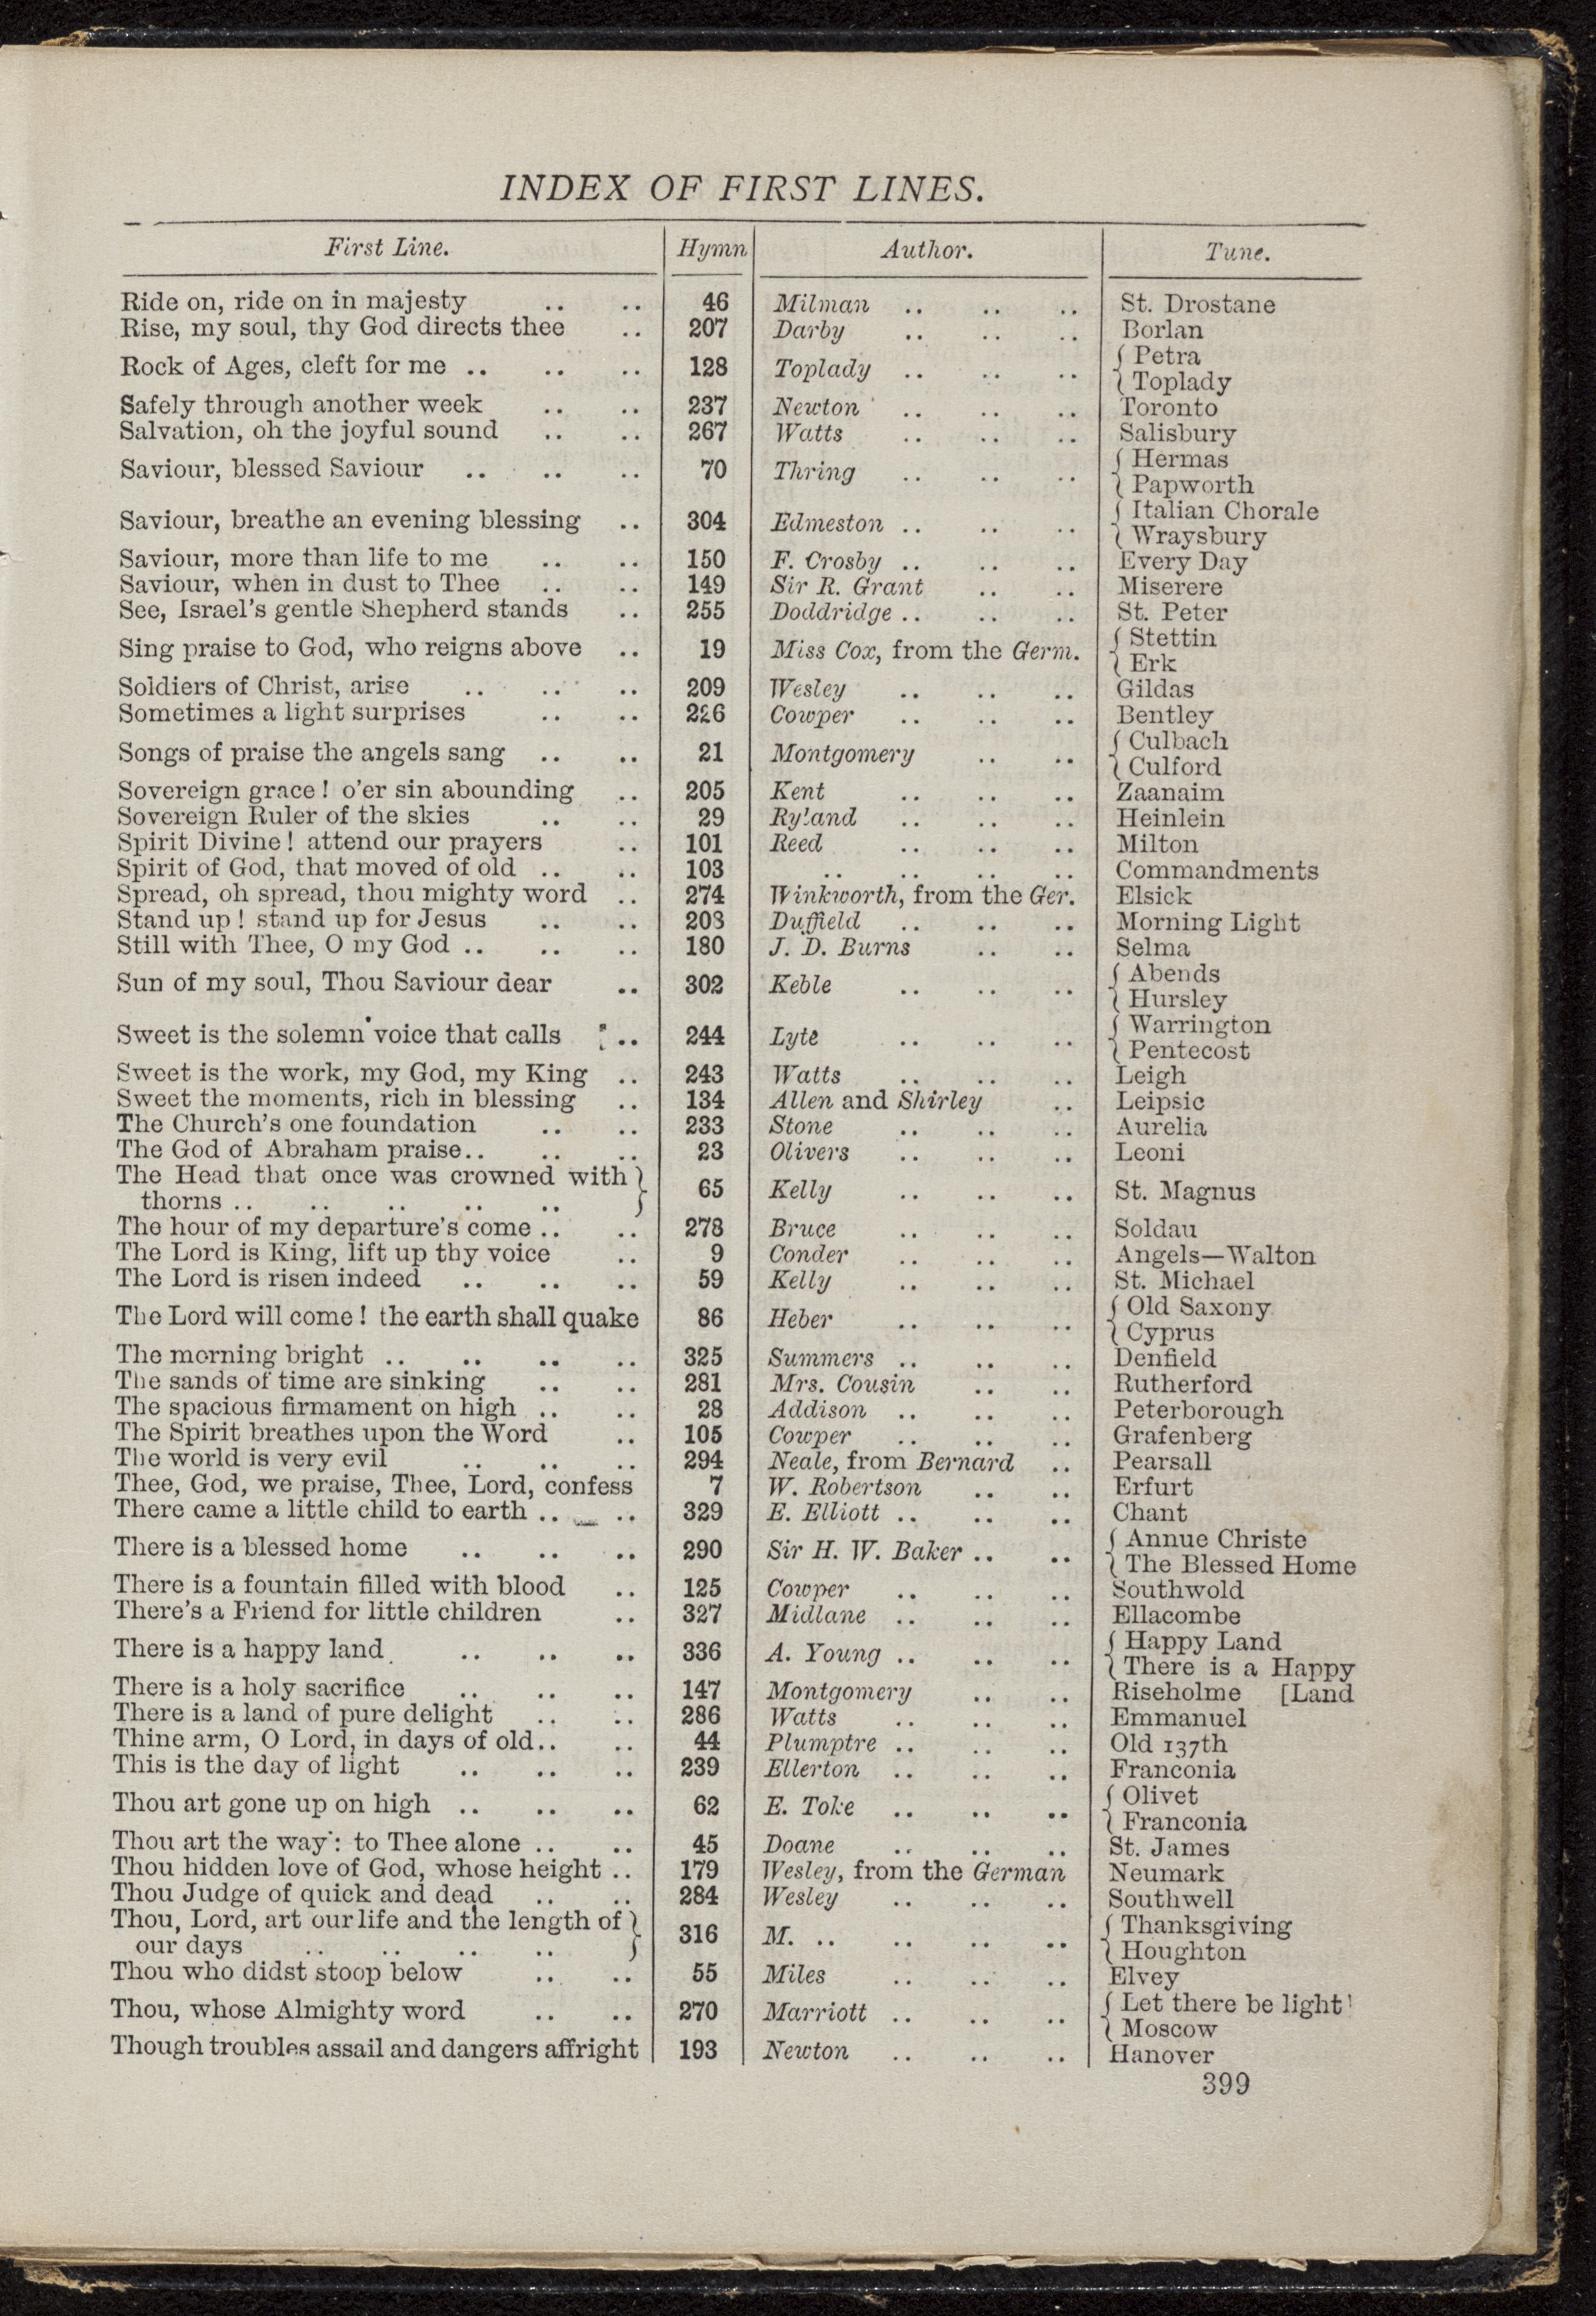 INDEX OF FIRST LINES.
First Line. Hymn Author. Tune.
Ride on, ride on in majesty .. .. 46 Milman .. .. .. St. Drostane
Rise, my soul, thy God directs thee .. 207 Darby .. .. .. Borlan
Rock of Ages, cleft for me .. .. .. 128 Toplady .. .. .. { Petra
{ Toplady
Safely through another week .. .. 237 Newton .. .. .. Toronto
Salvation, oh the joyful sound .. .. 267 Watts .. .. .. Salisbury
Saviour, blessed Saviour .. .. .. 70 Thring .. .. { Hermas
{ Papworth
Saviour, breathe an evening blessing .. 304 Edmeston .. .. .. { Italian Chorale
{ Wraysbury
Saviour, more than life to me .. .. 150 F. Crosby .. .. .. Every Day
Saviour, when in dust to Thee .. .. 149 Sir R. Grant .. .. Miserere
See, Israel's gentle Shepherd stands .. 255 Doddridge .. .. .. St. Peter
Sing praise to God, who reigns above .. 19 Miss Cox, from the Germ. { Stettin
{ Erk
Soldiers of Christ, arise .. .. .. 209 Wesley .. .. .. Gildas
Sometimes a light surprises .. .. 226 Cowper .. .. .. Bentley
Songs of praise the angels sang .. .. 21 Montgomery .. .. { Culbach
{ Culford
Sovereign grace! o'er sin abounding .. 205 Kent .. .. .. Zaanaim
Sovereign Ruler of the skies .. .. 29 Ryland .. .. .. Heinlein
Spirit Divine! attend our prayers .. 101 Reed .. .. .. Milton
Spirit of God, that moved of old .. .. 103 .. .. .. .. Commandments
Spread, oh spread, thou mighty word .. 274 Winkworth, from the Ger. Elsick
Stand up! stand up for Jesus .. .. 208 Duffield .. .. .. Morning Light
Still with Thee, O my God .. .. .. 180 J. D. Burns .. .. Selma
Sun of my soul, Thou Saviour dear .. 302 Keble .. .. .. { Abends
{ Hursley
Sweet is the solemn voice that calls .. 244 Lyte .. .. .. { Warrington
{ Pentecost
Sweet is the work, my God, my King .. 243 Watts .. .. .. Leigh
Sweet the moments, rich in blessing .. 134 Allen and Shirley .. Leipsic
The Church's one foundation .. .. 233 Stone .. .. .. Aurelia
The God of Abraham praise .. .. .. 23 Olivers .. .. .. Leoni
The Head that once was crowned with }
thorns .. .. .. .. .. } 65 Kelly .. .. .. St. Magnus
The hour of my departure's come .. .. 278 Bruce .. .. .. Soldau
The Lord is King, lift up thy voice .. 9 Conder .. .. .. Angels—Walton
The Lord is risen indeed .. .. .. 59 Kelly .. .. .. St. Michael
The Lord will come! the earth shall quake 86 Heber .. .. .. { Old Saxony
{ Cyprus
The morning bright .. .. .. .. 325 Summers .. .. .. Denfield
The sands of time are sinking .. .. 281 Mrs. Cousin .. .. Rutherford
The spacious firmament on high .. .. 28 Addison .. .. .. Peterborough
The Spirit breathes upon the Word .. 105 Cowper .. .. .. Grafenberg
The world is very evil .. .. .. 294 Neale, from Bernard .. Pearsall
Thee, God, we praise, Thee, Lord, confess 7 W. Robertson .. .. Erfurt
There came a little child to earth .. .. 329 E. Elliott .. .. .. Chant
There is a blessed home .. .. .. 290 Sir H. W. Baker .. .. { Annue Christe
{ The Blessed Home
There is a fountain filled with blood .. 125 Cowper .. .. .. Southwold
There's a Friend for little children .. 327 Midlane .. .. .. Ellacombe
There is a happy land .. .. .. 336 A. Young .. .. .. { Happy Land
{ There is a Happy
There is a holy sacrifice .. .. .. 147 Montgomery .. .. Riseholme [Land
There is a land of pure delight .. .. 286 Watts .. .. .. Emmanuel
Thine arm, O Lord, in days of old .. .. 44 Plumptre .. .. .. Old 137th
This is the day of light .. .. .. 239 Ellerton .. .. .. Franconia
Thou art gone up on high .. .. .. 62 E. Toke .. .. .. { Olivet
{ Franconia
Thou art the way: to Thee alone .. .. 45 Doane .. .. .. St. James
Thou hidden love of God, whose height .. 179 Wesley, from the German Neumark
Thou Judge of quick and dead .. .. 284 Wesley .. .. .. Southwell
Thou, Lord, art our life and the length of } 316 M. .. .. .. .. { Thanksgiving
our days .. .. .. .. } { Houghton
Thou who didst stoop below .. .. 55 Miles .. .. .. Elvey
Thou, whose Almighty word .. .. 270 Marriott .. .. .. { Let there be light
{ Moscow
Though troubles assail and dangers affright 193 Newton .. .. .. Hanover
399